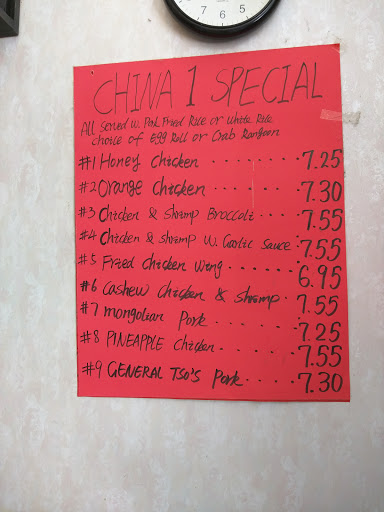 7 6 5
CHINA 1 SPECIAL
All Served w. Pork Fried Rice or White Rice
choice of Egg Roll or Crab Rangoon
#1 Honey Chicken ........ 7.25
#2 Orange Chicken ....... 7.30
#3 Chicken & Shrimp Broccoli .... 7.55
#4 Chicken & Shrimp W. Garlic Sauce . 7.55
#5 Fried Chicken Wing ...... 6.95
#6 Cashew Chicken & Shrimp . 7.55
#7 Mongolian Pork ...... 7.25
#8 PINEAPPLE Chicken ...... 7.55
#9 GENERAL TSO'S Pork .... 7.30